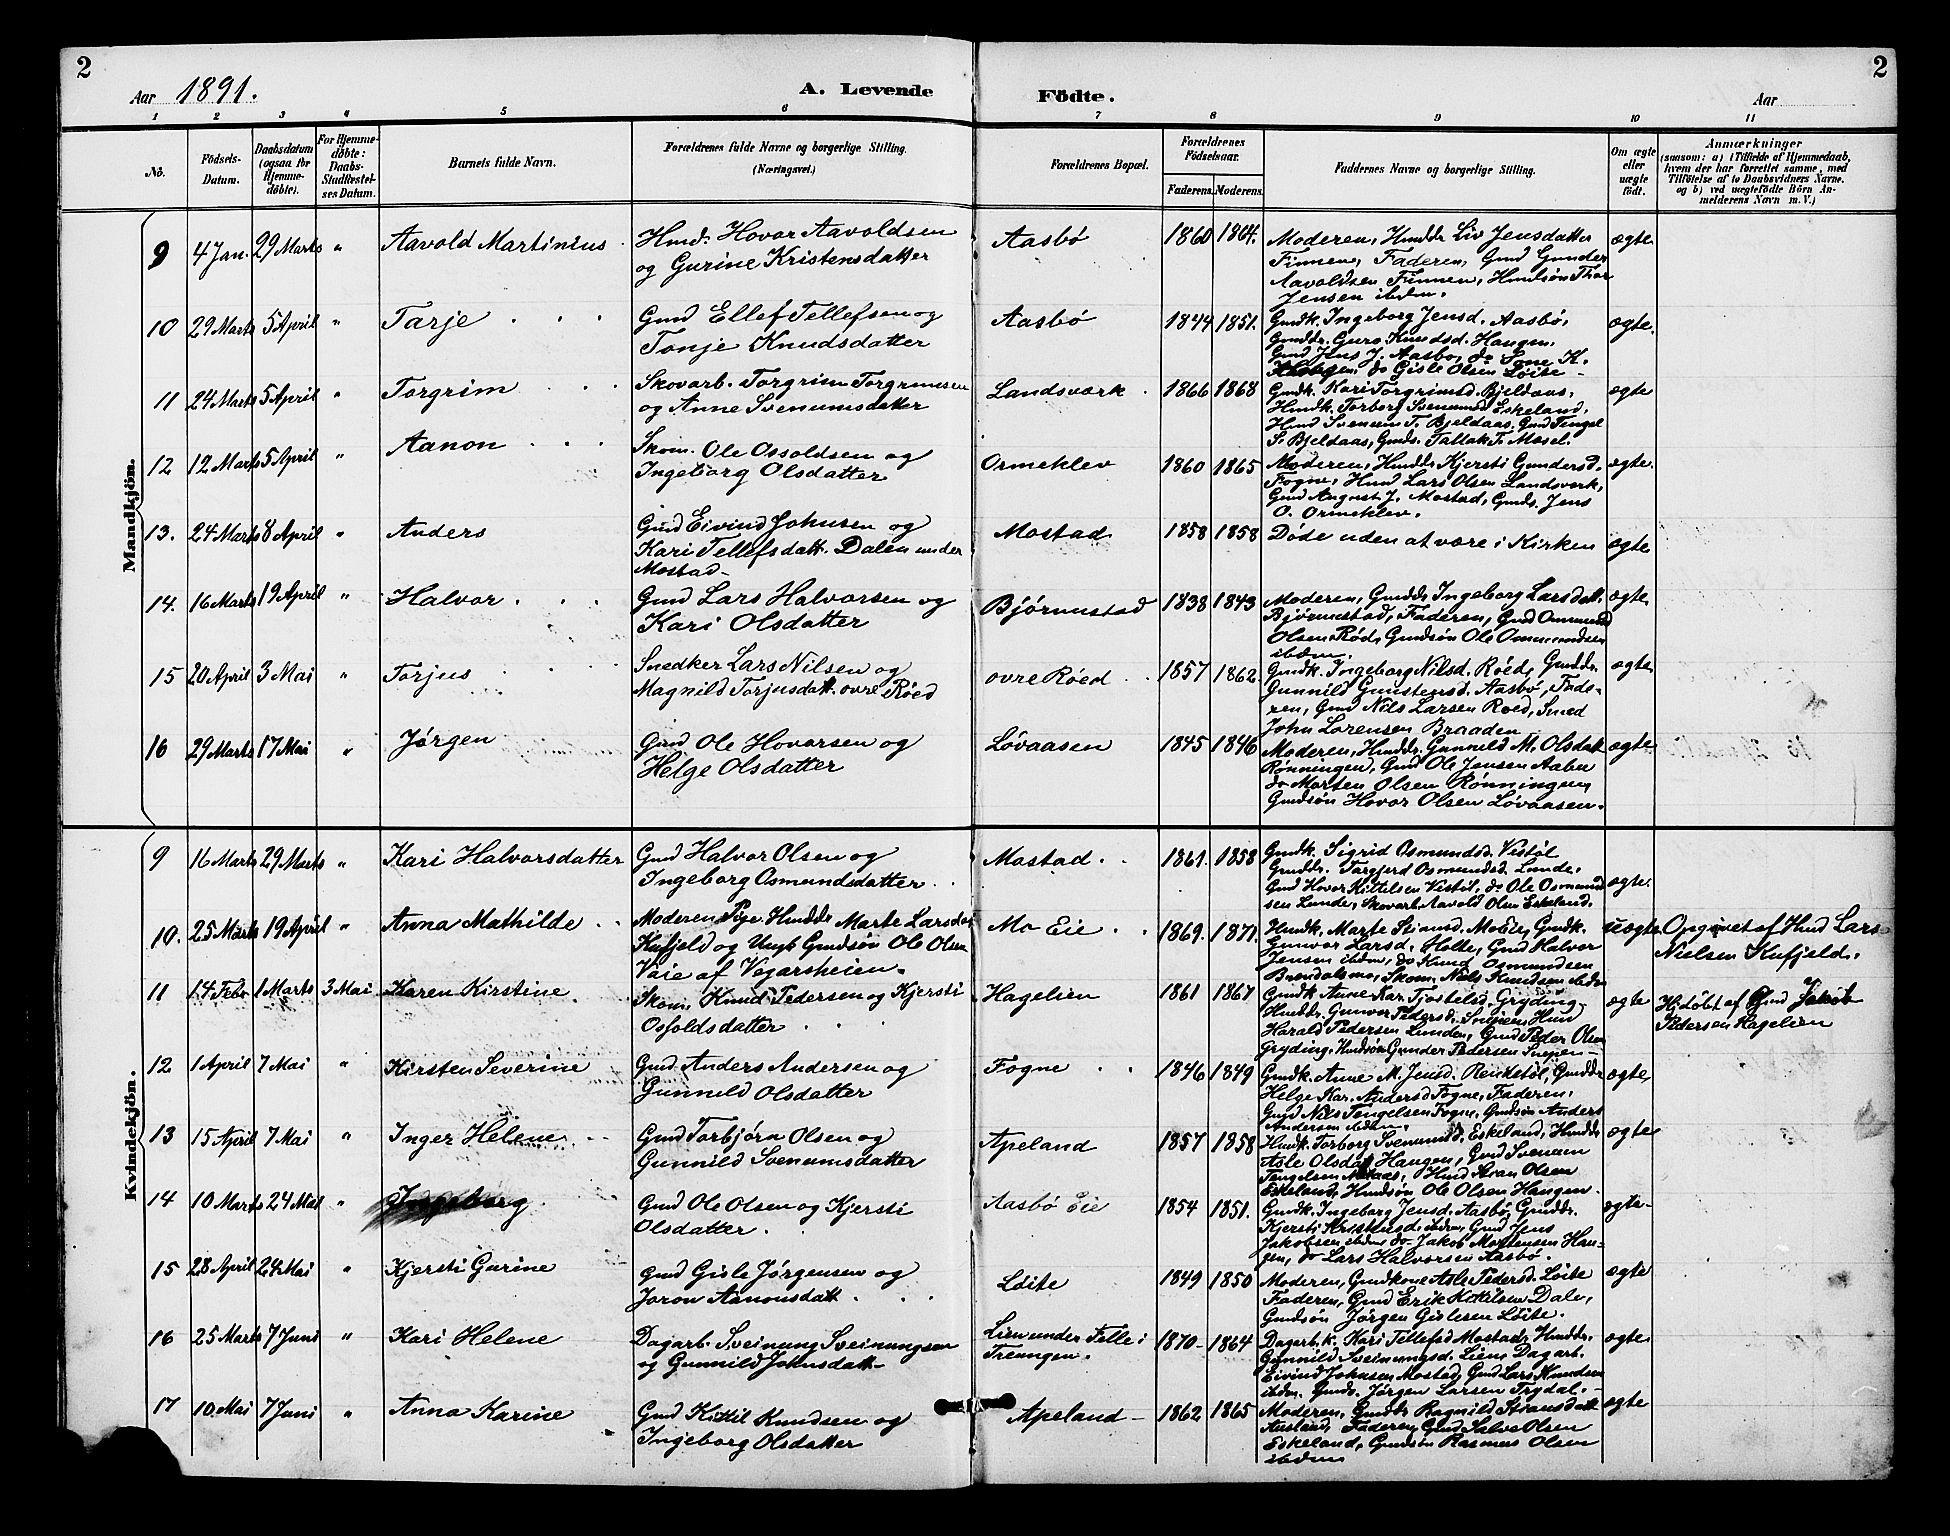 2
Aar 1891.
A. Levende Födte.
Aar
2
1 2 3 4 5 6 7 8 9 10 11
No.
Födsels-Datum.
Daabsdatum (ogsaa for Hjemmedöbte).
For Hjemmedöbte: Daabs-Stadfæstelses Datum.
Barnets fulde Navn.
Forældrenes fulde Navne og borgerlige Stilling. (Næringsvei.)
Forældrenes Bopæl.
Forældrenes Födselsaar.
Faderens. Moderens.
Faddernes Navne og borgerlige Stilling.
Om ægte eller uægte födt.
Anmærkninger
(saasom: a) i Tilfælde af Hjemmedaab, hvem der har forrettet samme, med Tilföielse af to Daabsvidners Navne, og b) ved uægtefödte Börn Anmelderens Navn m. V.)
Mandkjön.
9 4 Jan. 29 Marts " Aavold Martinius Hmd. Hovor Aavoldsen
og Gurine Kristensdatter
Aasbø 1860 1864. Moderen, Hmddr Liv Jensdatter
Finnene, Faderen, Gmd Gunder
Aavoldsen Finnen, Hmdsøn Thor
Jensen ibdm.
ægte
10 29 Marts 5 April " Tarje Gmd Ellef Tellefsen og
Tonje Knudsdatter
Aasbø 1844 1851. Gmdk. Ingeborg Jensd. Aasbø,
Gmddr. Guro Knudsd. Haugen,
Gmd Jens J. Aasbø, do K.
Haugen, do Gisle Olsen Löite
ægte.
11 24 Marts 5 April " Torgrim Skovarb. Torgrim Torgrimsen
og Anne Svenumsdatter
Landsværk 1866 1868 Gmdk. Kari Torgrimsd. Bjeldaas,
Hmdk. Torborg Svenumsd Eskeland,
Hmd Svenum T. Bjeldaas, Gmd Tengel
S. Bjeldaas, Gmds. Tallak T. Mæsel.
ægte
12 12 Marts 5 April " Aanon Skom. Ole Ossoldsen og
Ingeborg Olsdatter
Ormeklev 1860 1865 Moderen, Hmddr Kjersti Gundersd.
Fogne, Hmd Lars Olsen Landsverk,
Gmd August J. Mostad, Gmds. Jens
O. Ormeklev.
ægte.
13. 24 Marts 8 April " Anders Gmd Eivind Johnsen og
Kari Tellefsdatt. Dalen under
Mostad
Mostad 1858 1858 Døde uden at være i Kirken ægte
14. 16 Marts 19 April " Halvor Gmd Lars Halvorsen og
Kari Olsdatter
Bjørnustad 1838 1843 Moderen, Gmddr Ingeborg Larsdatt.
Bjørnustad, Faderen, Gmd Ommund
Olsen Röd, Gmdsøn Ole Ommundsen
ibdm.
ægte
15 20 April 3 Mai " Torjus Snedker Lars Nilsen og
Magnild Torjusdatt. ovre Röed
ovre Röed 1857 1862. Gmdk. Ingeborg Nilsd. Röed, Gmddr.
Gunnild Gunstensd. Aasbø, Fade-
ren, Gmd Nils Larsen Roed, Smed
John Lorensen Braaden
ægte
16 29 Marts 17 Mai " Jørgen Gmd Ole Hovorsen og
Helge Olsdatter
Løvaasen 1845 1846 Moderen, Hmddr. Gunnild M. Olsdatt
Rønningen, Gmd Ole Jensen Aabu
do Morten Olsen Rønningen,
Gmdsøn Hovor Olsen Løvaasen.
ægte
Kvindekjön.
9 16 Marts 29 Marts " Kari Halvorsdatter Gmd Halvor Olsen og
Ingeborg Osmundsdatter
Mostad 1861. 1858 Gmdk. Sigrid Osmundsd. Vestöl
Gmddr. Targjerd Osmundsd. Lunde.
Gmd Hovor Kittelsen Vestöl, do Ole Osmund
sen Lunde, Skovarb. Aavold Olsen Eskeland.
ægte.
10. 25 Marts 19 April " Anna Mathilde Moderen Pige Hmddr Marte Larsdat
Kufjeld og Ungk Gmdsøn Ole Olsen
Vaie af Vegarsheien.
Mo Eie 1869. 1871. Hmdk. Marte Steand. Mo Eie, Gmdk.
Gunvor Larsd. Holte, Gmd Halvor
Jensen ibdm, do Knud Osmundsen
Brendalsmo, Skom. Niels Knudsen ibdm
uægte Opgivet af Hmd Lars
Nielsen Kufjeld.
11 14 Febr 1 Marts 3 Mai Karen Kirstine Skom. Knud Pedersen og Kjersti
Osfoldsdatter
Hagelien 1861 1867 Gmdk Anne Kar. Tjostelsd. Gryding,
Hmddr. Gunvor Pedersd. Snepen, Hmd
Harald Pedersen Lunden, Gmd Peder Olsen
Gryding, Hmdsøn Gunder Pedersen Snepen
ægte Hj. døbt af Gmd Jakob
Pedersen Hagelien
12 1 April 7 Mai " Kirsten Severine Gmd Anders Andersen og
Gunnild Olsdatter
Fogne 1846 1849 Gmdk. Anne M. Jensd. Reukstöl, Gmddr
Helge Kar. Andersd Fogne, Faderen,
Gmd Nils Tengelsen Fogne, Gmdsøn Anders
Andersen ibdm.
ægte
13 15 April 7 Mai " Inger Helene Gmd Torbjørn Olsen og
Gunnild Svenumsdatter
Apeland 1857 1858 Hmdk. Torborg Svenumsd. Eskeland, Hmddr
Asle Olsdat Haugen, Gmd Svenum
Tengelsen, Hmd Olsen
Eskeland, Hmdsøn Ole Olsen Haugen.
ægte
14 10 Marts 24 Mai " Ingeborg Gmd Ole Olsen og Kjersti
Olsdatter
Aasbø Eie 1854 1851. Gmdk. Ingeborg Jensd. Aasbø, Gmddr.
Kjersti ibdm, Gmd Jens
Jakobsen ibdm, do Jakob Mortensen Hau-
gen, do Lars Halvorsen Aasbø.
ægte
15 28 April 24 Mai " Kjersti Gurine Gmd Gisle Jørgensen og
Joron Aanonsdatt
Löite 1849 1850 Moderen, Gmdkone Asle Pedersd. Löite
Faderen, Gmd Erik Kittilsen Dale,
Gmdsøn Jørgen Gislesen Löite.
ægte
16 25 Marts 7 Juni " Kari Helene Dagarb. Sveinung Sveinungsen
og Gunnild Johnsdatt
Lien under Felle i
Treungen.
1870 1864 Dagarb.k. Kari Tellefsd Mostad, Hmddr.
Gunnild Sveinungsd. Liene Dagarb.
Eivind Johnsen Mostad, Gmd Lars Knudsen
ibdm. Gmds. Jørgen Larsen Trydal.
ægte
17 10 Mai 7 Juni " Anna Karine Gmd Kittil Knudsen og
Ingeborg Olsdatter
Apeland 1862 1865 Moderen, Gmddr Ragnild
Faderen, Gmd Salve Olsen
Eskeland, Gmdsøn Rasmus Olsen
ibdm
ægte